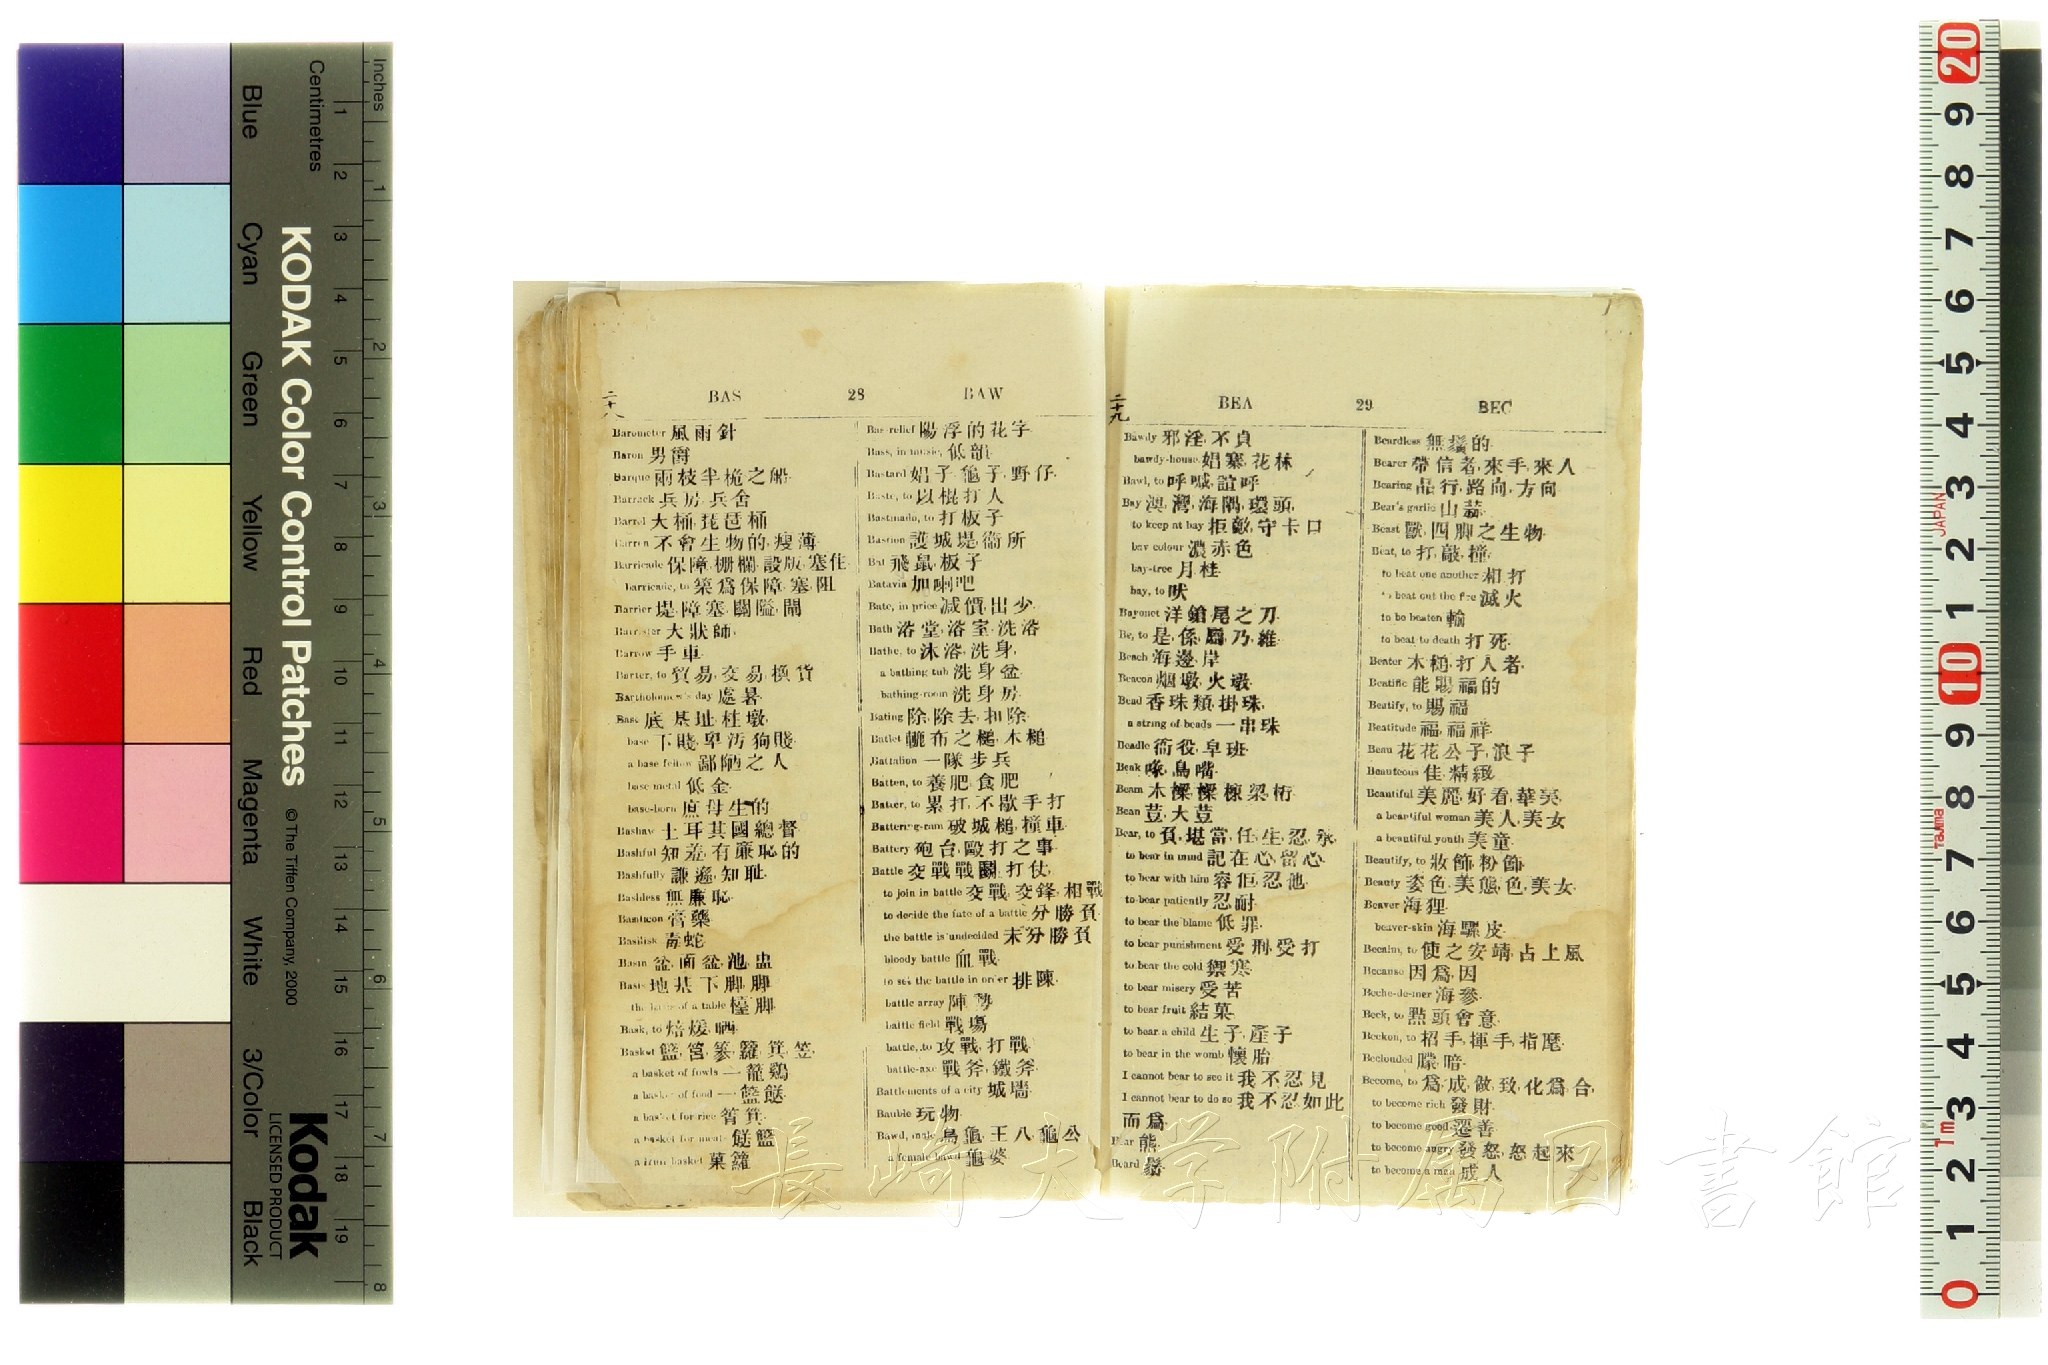 Inches
Centimetres
1 2 3 4 5 6 7 8 9 10 11 12 13 14 15 16 17 18 19
1 2 3 4 5 6 7 8
Blue
Cyan
Green
Yellow
Red
Magenta
White
3/Color
Black
KODAK Color Control Patches
© The Tiffen Company, 2000
Kodak
LICENSED PRODUCT
二十八
BAS 28 BAW
Barometer 風雨針
Baron 男爵
Barque 兩枝半桅之船
Barrack 兵房,兵舍
Barrel 大桶,琵琶桶
Barren 不會生物的,瘦薄
Barricade 保障,柵欄,設版,塞住
barricade, to 築爲保障,塞阻
Barrier 堤,障,塞,關隘,閘
Barrister 大狀師
Barrow 手車
Barter, to 貿易,交易,換貨
Bartholomew's day 處暑
Base 底,基址,柱墩
base 下賤,卑污,狗賤
a base fellow 鄙陋之人
base metal 低金
base-born 庶母生的
Bashaw 土耳其國總督
Bashful 知羞,有廉恥的
Bashfully 謙遜,知耻
Bashless 無廉恥
Basilicon 膏藥
Basilisk 毒蛇
Basin 盆,面盆,池,盅
Basis 地基,下脚,脚
the basis of a table 檯脚
Bask, to 焙,煖,晒
Basket 籃,筥,籮,箕,笠
a basket of fowls 一籠鷄
a basket of food 一籃餸
a basket for rice 筲箕
a basket for meat 餸籃
a fruit basket 菓籮
Bas-relief 陽浮的花字
Bass, in music, 低韻
Bastard 娼子,龜子,野仔
Baste, to 以棍打人
Bastinado, to 打板子
Bastion 護城堤,衞所
Bat 飛鼠,板子
Batavia 加喇吧
Bate, in price 減價,出少
Bath 浴堂,浴室,洗浴
Bathe, to 沐浴,洗身
a bathing tub 洗身盆
bathing-room 洗身房
Bating 除,除去,扣除
Batlet 布之槌,木槌
Battalion 一隊步兵
Batten, to 養肥,食肥
Batter, to 累打,不歇手打
Battering-ram 破城槌,撞車
Battery 砲台,毆打之事
Battle 交戰,戰鬬,打仗
to join in battle 交戰,交鋒,相戰
to decide the fate of a battle 分勝負
the battle is undecided 未分勝負
bloody battle 血戰
to set the battle in order 排陳
battle array 陣勢
battle field 戰塲
battle, to 攻戰,打戰
battle-axe 戰斧,鐵斧
Battlements of a city 城墻
Bauble 玩物
Bawd, male 烏龜,王八,龜公
a female bawd 龜婆
二十九
BEA 29 BEC
Bawdy 邪淫,不貞
bawdy-house 娼寨,花林
Bawl, to 呼喊,諠呼
Bay 澳,灣,海隅,環頭
to keep at bay 拒敵,守卡口
bay colour 濃赤色
bay-tree 月桂
bay, to 吠
Bayonet 洋鎗尾之刀
Be, to 是,係,屬,乃,維
Beach 海邊,岸
Beacon 烟墩,火墩
Bead 香珠類,掛珠
a string of beads 一串珠
Beadle 衙役,皁班
Beak 喙,鳥嘴
Beam 木檁,檁,棟,梁,桁
Bean 荳,大荳
Bear, to 負,堪當,任,生,忍,承
to bear in mind 記在心,留心
to bear with him 容佢,忍他
to bear patiently 忍耐
to bear the blame 低罪
to bear punishment 受刑,受打
to bear the cold 禦寒
to bear misery 受苦
to bear fruit 結菓
to bear a child 生子,產子
to bear in the womb 懷胎
I cannot bear to see it 我不忍見
I cannot bear to do so 我不忍如此
而爲
Bear 熊
Beard 鬍
Beardless 無鬚的
Bearer 帶信者,來手,來人
Bearing 品行,路向,方向
Bear's garlic 山蒜
Beast 獸,四脚之生物
Beat, to 打,敲,撞
to beat one another 相打
to beat out the fire 滅火
to be beaten 輸
to beat to death 打死
Beater 木槌,打人者
Beatific 能賜福的
Beatify, to 賜福
Beatitude 福,福祥
Beau 花花公子,浪子
Beauteous 佳,精緻
Beautiful 美麗,好看,華美
a beautiful woman 美人,美女
a beautiful youth 美童
Beautify, to 妝飾,粉飾
Beauty 姿色,美態,色,美女
Beaver 海狸
beaver-skin 海騾皮
Becalm, to 使之安靖,占上風
Because 因爲,因
Beche-de-mer 海參
Beck, to 點頭會意
Beckon, to 招手,揮手,指麾
Beclouded 朦暗
Become, to 爲,成,做,致,化爲,合
to become rich 發財
to become good 遷善
to become angry 發怒,怒起來
to become a man 成人
長崎大学附属図書館
20 9 8 7 6 5 4 3 2 1 10 9 8 7 6 5 4 3 2 1 0
JAPAN
Tajima
1m